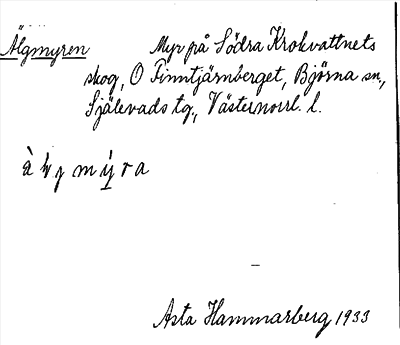 Älgmyren Myr på Södra Krokvattnets
skog, O Finntjärnberget, Björna sn.,
Själevads tg., Västernorrl. l.
Asta Hammarberg 1933